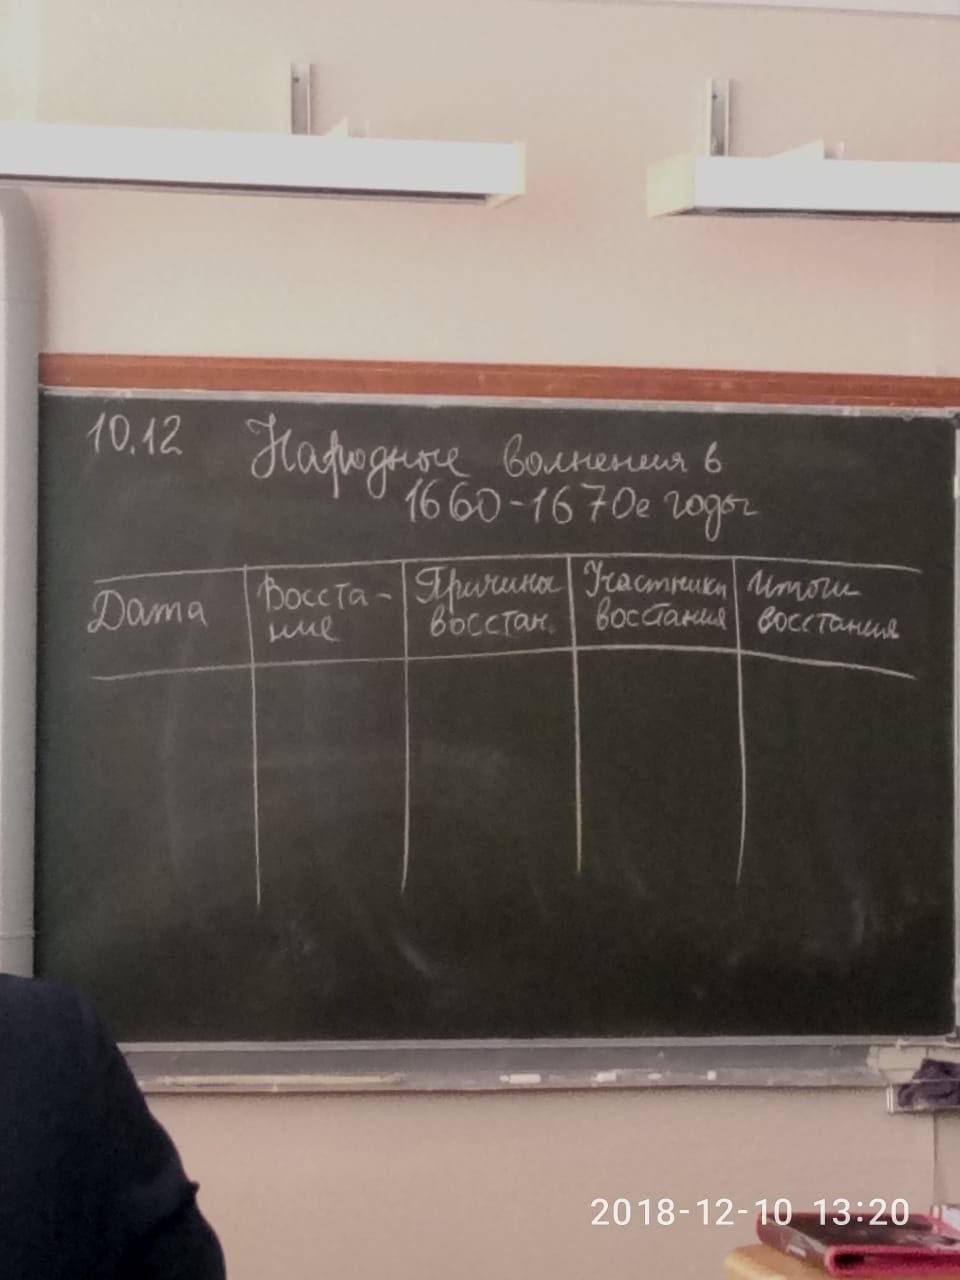 10.12 Народные волнения в
1660-1670е годы
Дата
Восста-
ние
Причины
восстан.
Участники
восстания
Итоги
восстания
2018-12-10 13:20